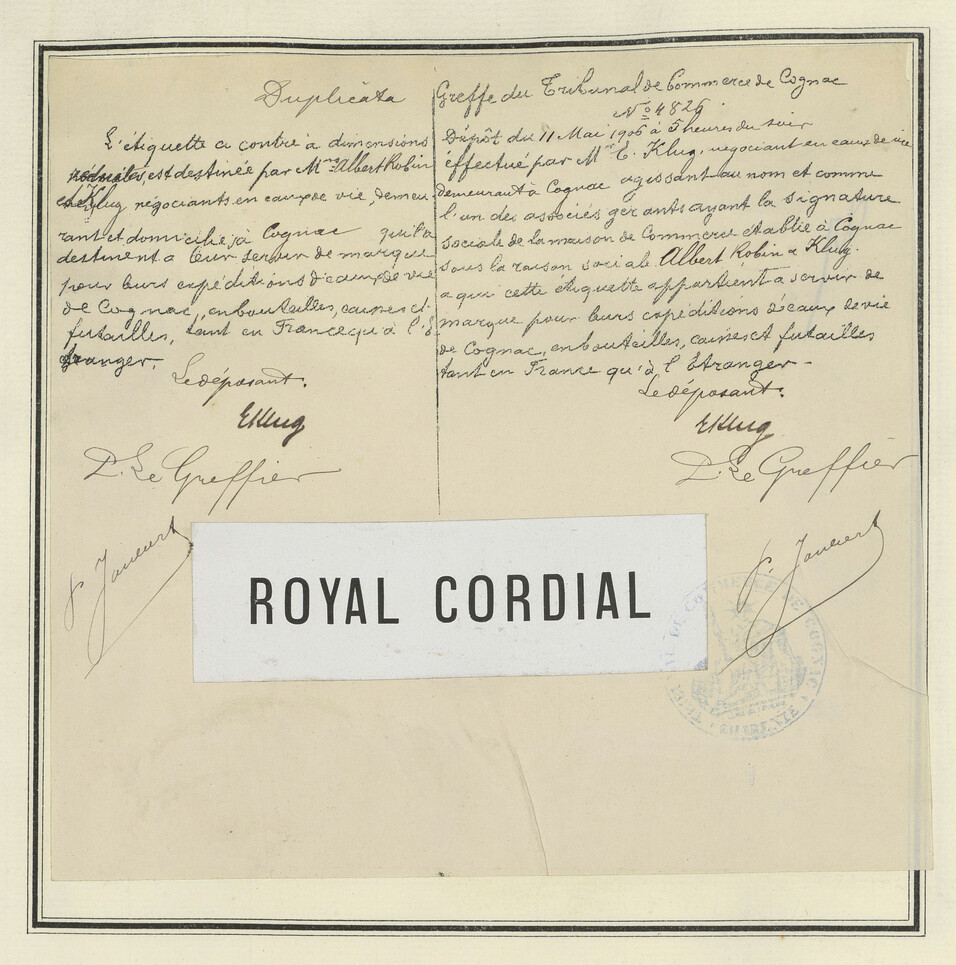 Duplicata
L'étiquette ci contre à dimensions
réduites, est destinée par Mrs Albert Robin
et Klug négociants en eaux de vie, demeu
rant et domiciliés à Cognac qui la
destinent à leur servir de marque
pour leurs expéditions d'eaux de vie
de Cognac, en bouteilles, caisses et
futailles, tant en France qu'à l'é
tranger.
Le déposant.
EKlug
P. Le Greffier
Greffe du Tribunal de Commerce de Cognac
No 4826.
Dépôt du 11 Mai 1906 à 5 heures du soir
effectué par Mr E. Klug, négociant en eaux de vie
demeurant à Cognac agissant au nom et comme
l'un des associés gérants ayant la signature
sociale de la maison de Commerce établie à Cognac
sous la raison sociale Albert Robin & Klug.
à qui cette étiquette appartient à servir de
marque pour leurs expéditions d'eaux de vie
de Cognac, en bouteilles, caisses et futailles
tant en France qu'à l'Étranger -
Le déposant.
EKlug
P. Le Greffier
ROYAL CORDIAL
TRIBUNAL DE COMMERCE DE COGNAC
CHARENTE